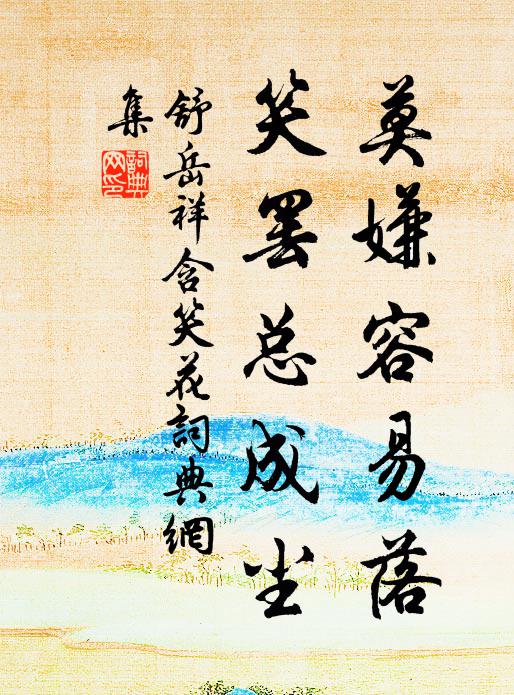 莫嫌容易落
笑罢总成尘
舒岳祥含笑花詞典網
集
詞典
网印